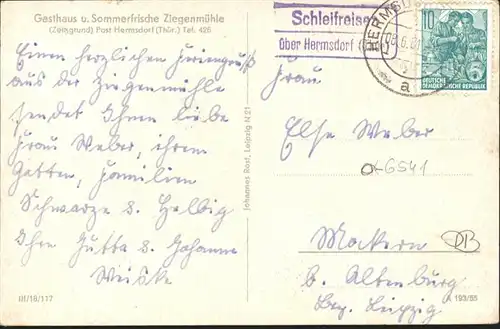 Gasthaus u. Sommerfrische Ziegenmühle
(Zeitzgrund) Post Hermsdorf (Thür.) Tel. 426
Einen herzlichen Feriengruß
aus der Ziegenmühle
sendet Ihnen liebe
Frau Weber, ihrem
Gatten, Familien
Schwarze & Helbig
Ihre Jutta & Johanne
Weiske
III/18/117
Johannes Rost, Leipzig N 21
Schleifreisen
über Hermsdorf
HERMSDO
a
10
DEUTSCHE
DEMOKRATISCHE REPUBLIK
Frau
Else Weber
6541
Mockern
b. Altenburg
Bez. Leipzig
DB
A 193/55